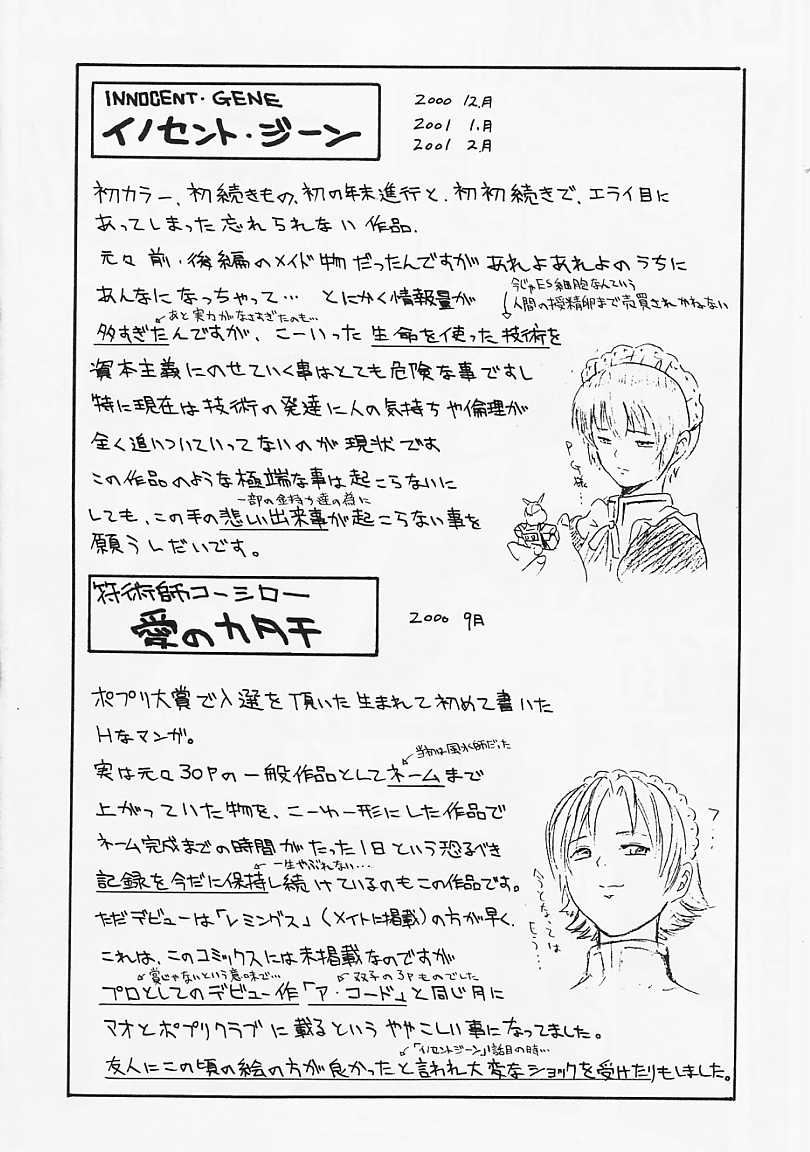 INNOCENT・GENE
イノセント・ジーン
2000 12月
2001 1月
2001 2月
初カラー、初続きもの、初の年末進行と、初初続きで、エライ目に
あってしまった忘れられない作品.
元々前・後編のメイド物だったんですが あれよあれよのうちに
あんなになっちゃって… とにかく情報量が
今じゃES細胞なんていう
人間の授精卵まで売買されかねない
あと実力がなさすぎたのも…
多すぎたんですが、こーいった生命を使った技術を
資本主義にのせていく事はとても危険な事ですし
特に現在は技術の発達に人の気持ちや倫理が
全く追いついていってないのが現状です
この作品のような極端な事は起こらないに
一部の金持ち達の為に
しても、この手の悲しい出来事が起こらない事を
願うしだいです。
P.G様…
符術師コーシロー
愛のカタチ
2000 9月
ポプリ大賞で入選を頂いた生まれて初めて書いた
Hなマンガ。
当初は風水師だった
実は元々30Pの一般作品としてネームまで
上がっていた物を、こーゆー形にした作品で
ネーム完成までの時間がたった1日という恐るべき
一生やぶれない…
記録を今だに保持し続けているのもこの作品です。
ただデビューは「レミングス」(メイトに掲載)の方が早く、
これは、このコミックスには未掲載なのですが
賞じゃないという意味で…
双子の3Pものでした
プロとしてのデビュー作「ア・コード」と同じ月に
マオとポプリクラブに載るというややこしい事になってました。
「イノセントジーン」1話目の時…
友人にこの頃の絵の方が良かったと言われ大変なショックを受けたりもしました。
フ…
今となっては
もう…